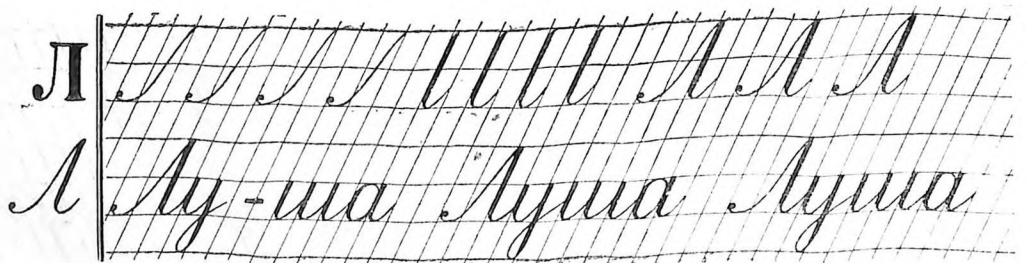 Л Л Л Л
Л Лу-ша Луша Луша